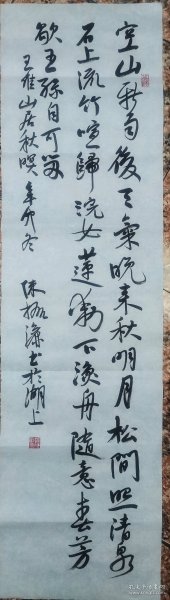 空山新雨後天氣晚来秋明月松間照清泉
石上流竹喧歸浣女蓮動下漁舟随意春芳
歇王孫自可留
王維山居秋暝 辛卯冬
书於湖上